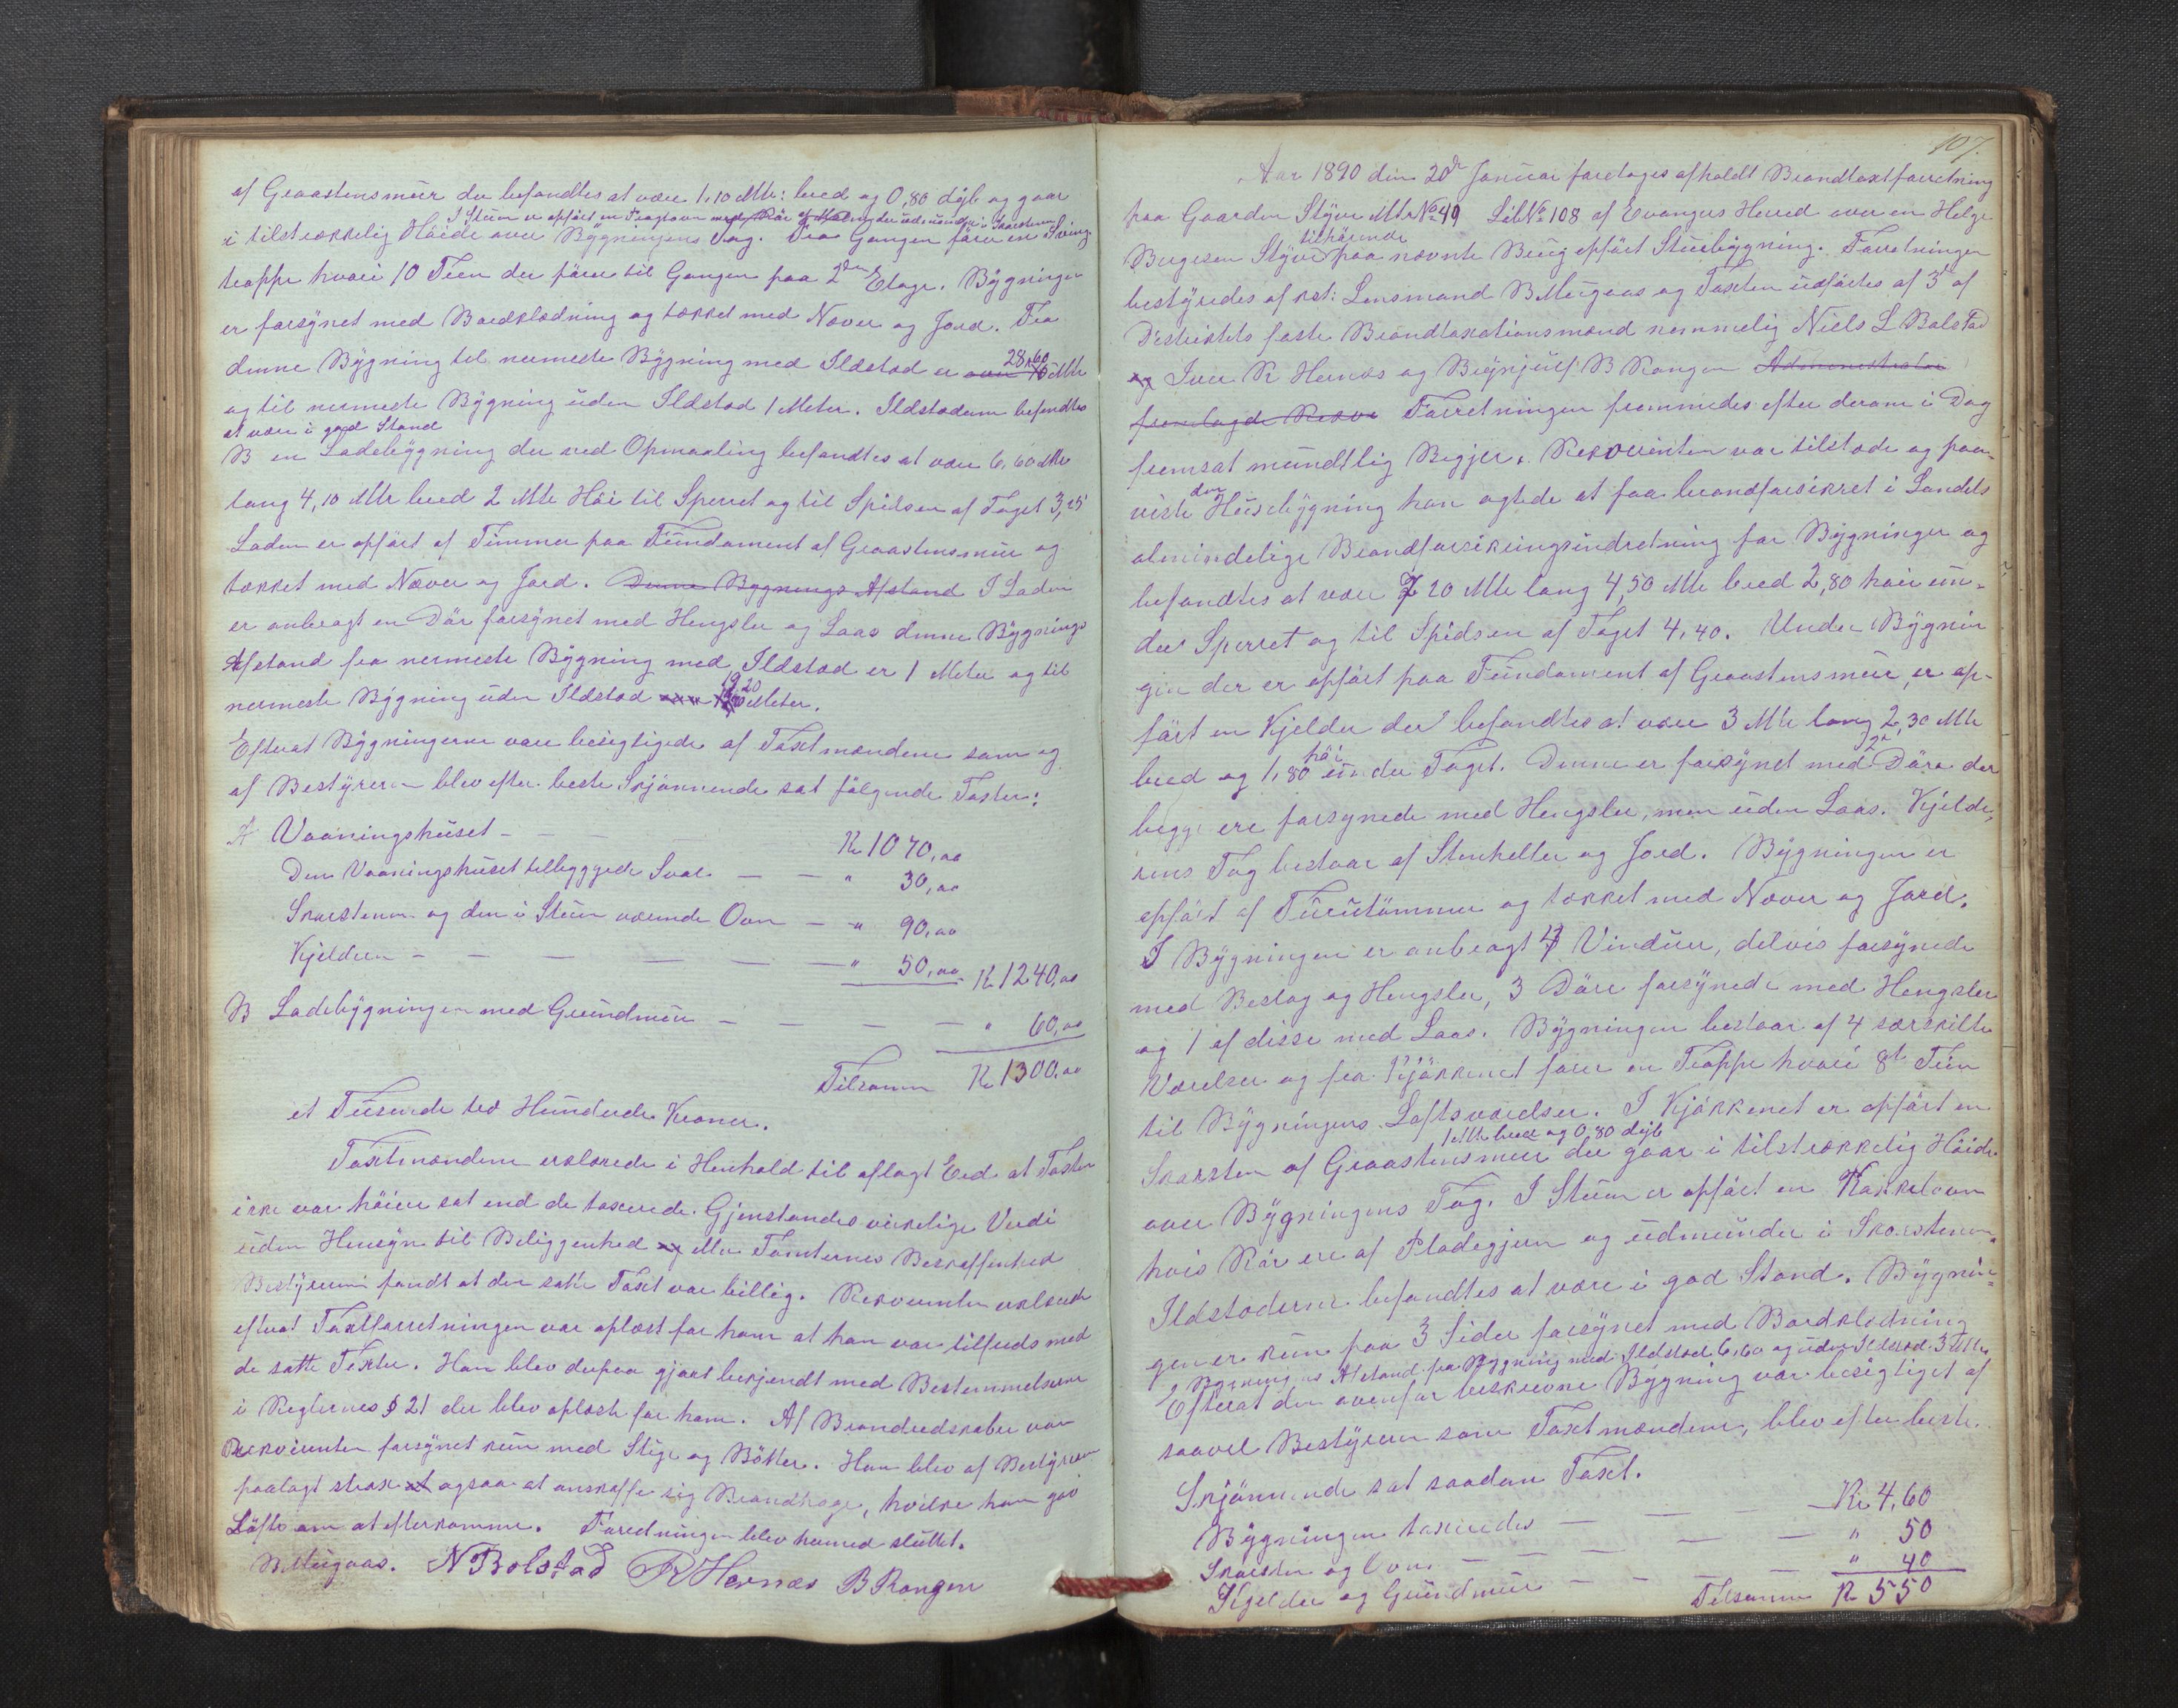 af Graastensmuur der befandtes at være 1,10 Mtr: bred og 0,80 dyb og gaar
I Stuen er opført en Tragtovn med Rør af Malm der udmunder i Skorstenen
i tilstrækkelig Høide over Bygningens Tag. Fra Gangen fører en Sving-
trappe hvori 10 Trin der fører til Gangen paa 2den Etage. Bygningen
er forsynet med Bordklædning og tækket med Næver og Jord. Fra
denne Bygning til nermeste Bygning med Ildsted er over 28,60 Mtr
og til nermeste Bygning uden Ildsted 1 Meter. Ildstederne befandtes
at være i god Stand
B en Ladebygning der ved Opmaaling befandtes at være 6,60 Mtr
lang 4,10 Mtr bred 2 Mtr Høi til Sperret og til Spidsen af Taget 3,25
Laden er opført af Tømmer paa Fundament af Graastensmuur og
tækket med Næver og Jord. Denne Bygnings Afstand I Laden
er anbragt en Dør forsynet med Hengsler og Laas denne Bygnings
Afstand fra nermeste Bygning med Ildsted er 1 Meter og til
nermeste Bygning uden Ildsted 19,20 Meter.
Efterat Bygningerne vare besigtigede af Taxtmændene som og
af Bestyreren blev efter beste Skjønnende sat følgende Taxter:
A Vaaningshuset - - - Kr 1070,00
Den Vaaningshuset tilbyggede Sval - - " 30,00
Skorstenen og den i Stuen værende Ovn - " 90,00
Kjelderen - - - - - " 50,00 Kr 1240,00
B Ladebygningen med Grundmuur - - - - " 60,00
Tilsamm Kr 1300,00
et Tusende tre Hundrede Kroner.
Taxtmændene erklærede i Henhold til aflagt Eed at Taxten
ikke var høiere sat end de taxerede Gjenstandes virkelige Verdi
uden Hensyn til Beliggenhed og eller Tomternes Beskaffenhed
Bestyreren fandt at den satte Taxt var billig. Rekvirenten erklærede
efterat Taxtforretningen var oplæst for ham at han var tilfreds med
de satte Taxter. Han blev derpaa gjort bekjendt med Bestemmelserne
i Reglernes § 21 der blev oplæst for ham. Af Brandredskaber var
Rekvirenten forsynet kun med Stige og Bøtter. Han blev af Bestyreren
paalagt strax at ogsaa at anskaffe sig Brandhage, hvilke han gav
Løfte om at efterkomme. Forretningen blev hermed sluttet.
N Bolstad R Hernæs B Rongen
107.
Aar 1890 den 20de Januar foretoges afholdt Brandtaxtforretning
paa Gaarden Styve Mtr No 49 Løb No 108 af Evangers Herred over en Helge
tilhørende
Brigtsen Styve paa nævnte Brug opført Stuebygning. Forretningen
bestyredes af kst: Lensmand B Mugaas og Taxten udførtes af 3 af
Distriktets faste Brandtaxationsmænd nemmelig Niels L Bolstad
og Iver R Hernæs og Brynjulf B Rongen Administrator
fremlagde Rekvi Forretningen fremmedes efter derom i Dag
fremsat mundtlig Begjer. Rekvirenten var tilstede og paa-
den
viste Huusebygning han agtede at faa brandforsikret i Landets
almindelige Brandforsikringsindretning for Bygninger og
befandtes at være 7 20 Mtr lang 4,50 Mtr bred 2,80 høi un-
der Sperret og til Spidsen af Taget 4,40. Under Bygnin
gen der er opført paa Fundament af Graastensmuur, er op-
ført en Kjelder der befandtes at være 3 Mtr lang 2,30 Mtr
høi 2de
bred og 1,80 under Taget. Denne er forsynet med Døre der
begge ere forsynede med Hengsler, men uden Laas. Kjelde,
rens Tag bestaar af Stenheller og Jord. Bygningen er
opført af Furutømmer og tækket med Næver og Jord.
I Bygningen er anbragt 4 Vinduer, delvis forsynede
med Beslag og Hengsler, 3 Døre forsynede med Hengsler
og 1 af disse med Laas. Bygningen bestaar af 4 særskilte
Værelser og fra Kjøkkenet fører en Trappe hvori 8 Trin
til Bygningens Loftsværelser. I Kjøkkenet er opført en
1 Mtr bred og 0,80 dyb
Skorsten af Graastensmuur der gaar i tilstrækkelig Høide
over Bygningens Tag. I Stuen er opført en Kakkelovn
hvis Rør ere af Pladegjern og udmunder i Skorstenen.
Ildstederne befandtes at være i god Stand. Bygnin=
gen er kun paa 3 Sider forsynet med Bordklædning
Bygningens Afstand fra Bygning med Ildsted 6,60 og uden Ildsted 3 Mtr
Efterat den ovenfor beskrevne Bygning var besigtiget af
saavel Bestyreren som Taxtmændene, blev efter beste
Skjønnende sat saadan Taxt.
Bygningen taxeredes - - - Kr 4,60
Skorsten og Ovn - - - - " 50
Kjelder og Grundmuur - - - " 40
Tilsamm Kr 550